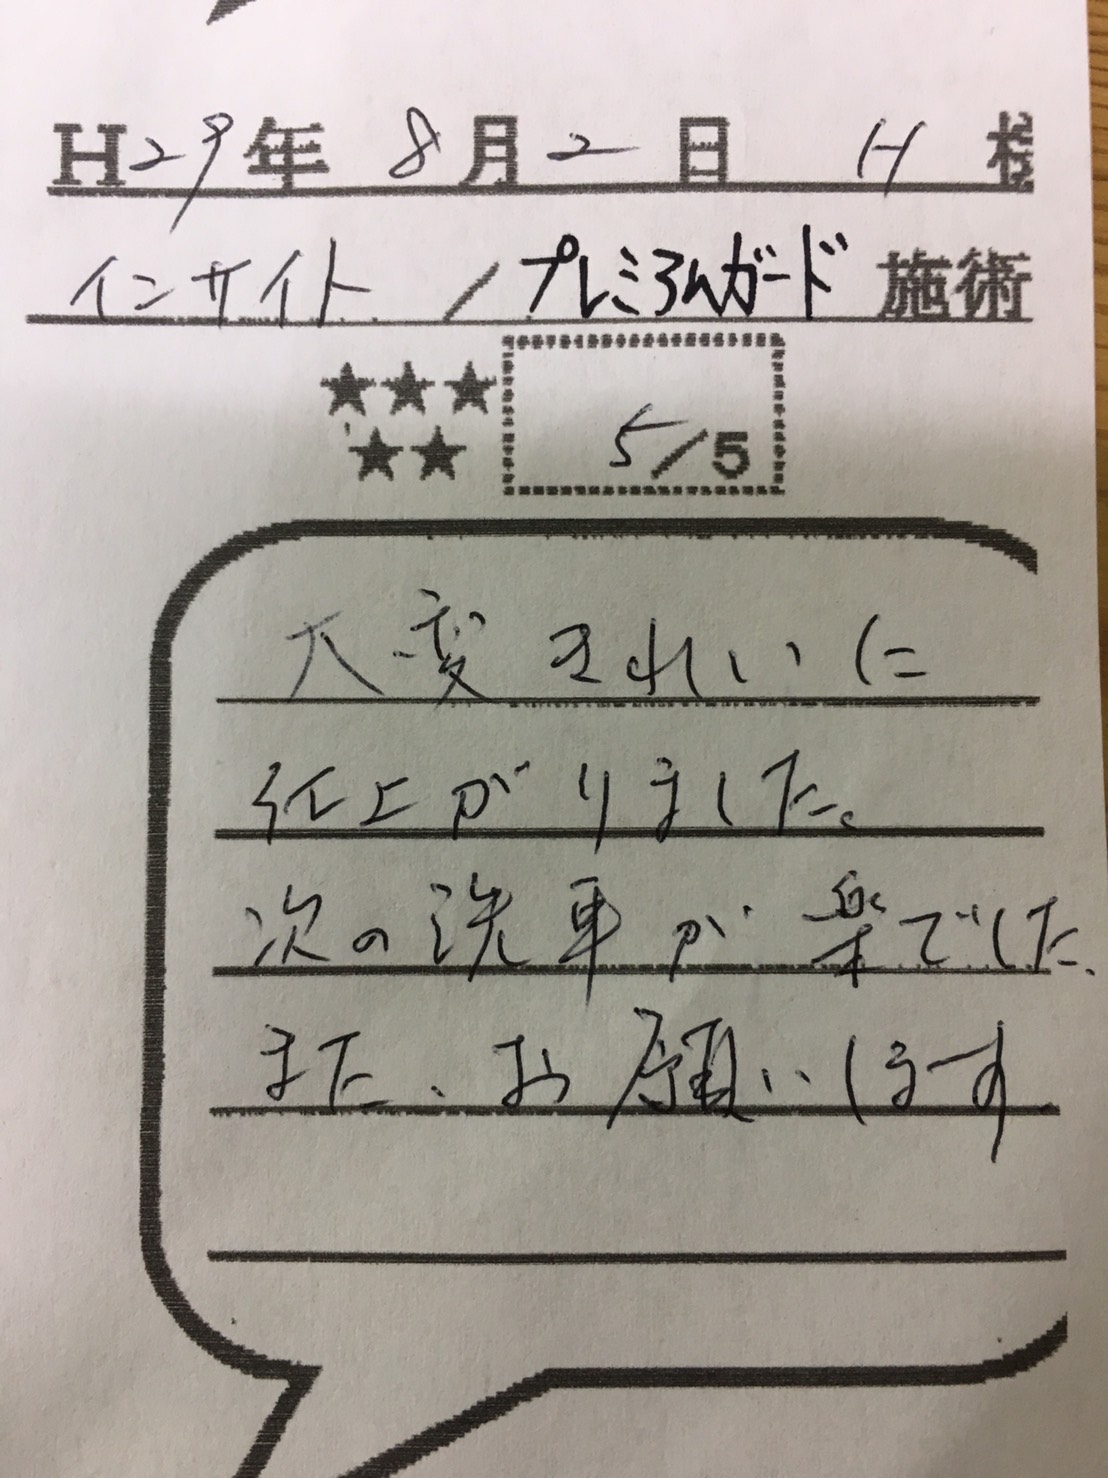 H29年 8月2日 H 様
インサイト / プレミアムガード 施術
★★★
★★
5/5
大変きれいに
仕上がりました。
次の洗車が楽でした。
また、お願いします